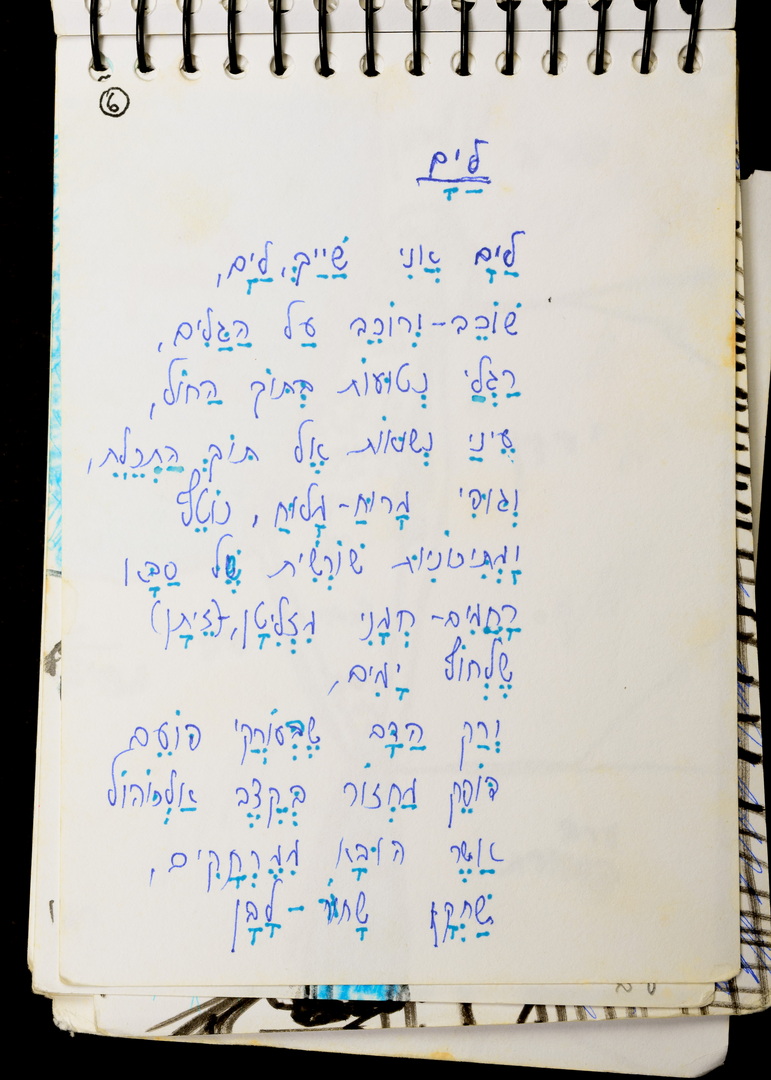 6
לַיָם
לַיָם אֲנִי שַׁיֵיךְ, לַיָם,
שׁוֹכֵב-וְרוֹכֵב עַל הַגַלִים,
רַגְלַי נְטוּעוֹת בְּתוֹךְ הַחוֹל,
עֵינַי נְשׂוּאוֹת אֶל תוֹךְ הַתְכֵלֶת,
וְגוּפִי מָרוּחַ-מָלוּחַ, נוֹטֵף
וּמְתִיכוֹנִיוּת שׁוֹרְשִׁית שֶׁל סַבָּא
רַחֲמִים-חְמָנִי מִזְלִיטָן, (זֵיתָן)
שֶׁלְחוֹף יָמִים,
וְרַק הַדָם שֶׁבְּעוֹרְקַי פּוֹעֵם
דוֹפֵק מַחְזוֹר בְּקֶצֶב אַלְכּוֹהוֹל
אֲשֶׁר הוּבָא מִמֶרְחָקִים,
שַׂחְקָן שָׁחוֹר - לָבָן